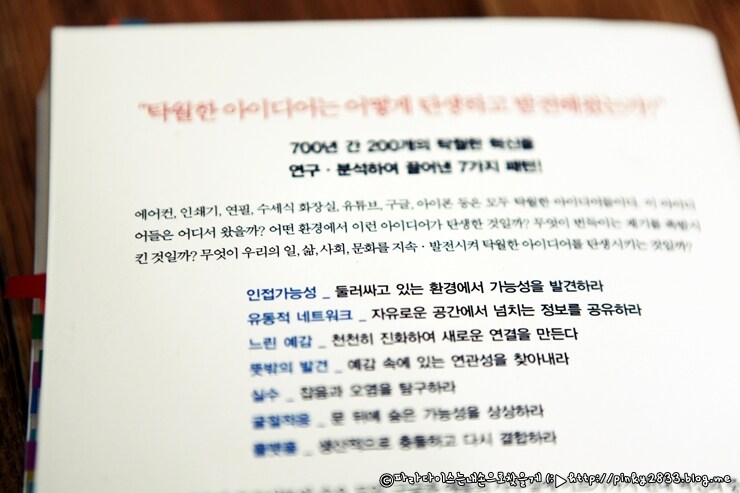 "탁월한 아이디어는 어떻게 탄생하고 발전해왔는가?"
700년 간 200개의 탁월한 혁신을
연구·분석하여 끌어낸 7가지 패턴!
에어컨, 인쇄기, 연필, 수세식 화장실, 유튜브, 구글, 아이폰 등은 모두 탁월한 아이디어들이다. 이 아이디
어들은 어디서 왔을까? 어떤 환경에서 이런 아이디어가 탄생한 것일까? 무엇이 번득이는 계기를 촉발시
킨 것일까? 무엇이 우리의 일, 삶, 사회, 문화를 지속·발전시켜 탁월한 아이디어를 탄생시키는 것일까?
인접가능성 _ 둘러싸고 있는 환경에서 가능성을 발견하라
유동적 네트워크 _ 자유로운 공간에서 넘치는 정보를 공유하라
느린 예감 _ 천천히 진화하여 새로운 연결을 만든다
뜻밖의 발견 _ 예감 속에 있는 연관성을 찾아내라
실수 _ 잡음과 오염을 탐구하라
굴절적응 _ 문 뒤에 숨은 가능성을 상상하라
플랫폼 _ 생산적으로 충돌하고 다시 결합하라
ⓒ파라다이스는내손으로찾을게 (:▶http://pinky2833.blog.me